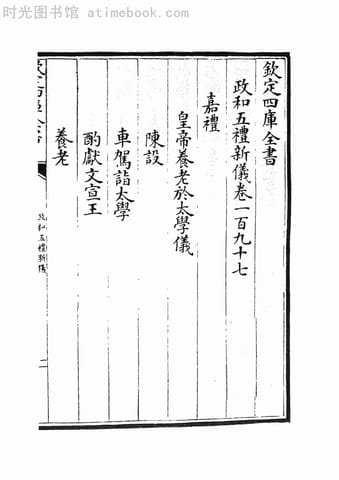 时光图书馆 atimebook.com
欽定四庫全書
政和五禮新儀卷一百九十七
嘉禮
皇帝養老於太學儀
陳設
車駕詣太學
酌獻文宣王
養老
政和五禮新儀